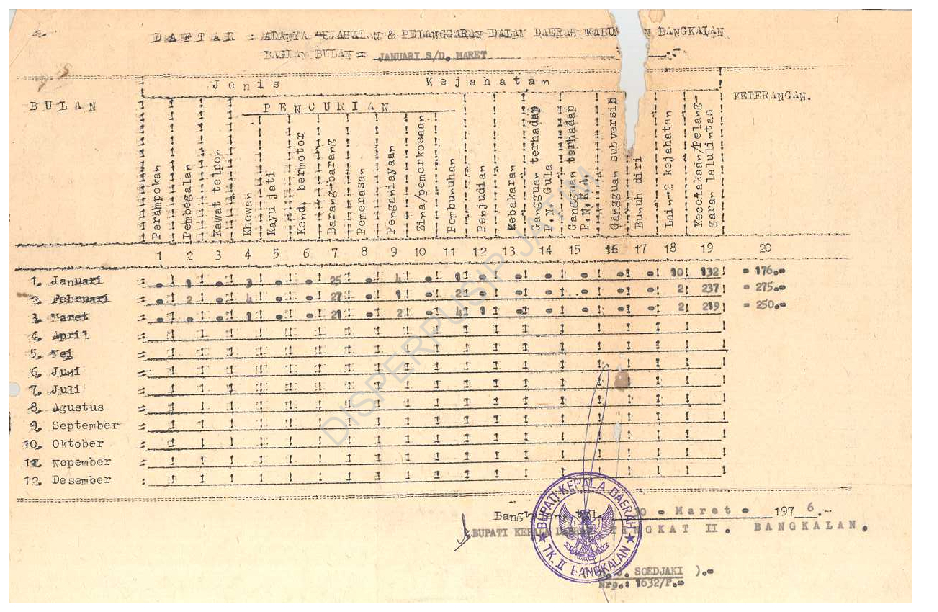 DAFTAR : ADANYA KEJAHATAN & PELANGGARAN DALAM DAERAH BANGKALAN
BAGIAN BULAN : JANUARI S/D. MARET
BULAN
Jenis Kejahatan
KETERANGAN.
PENCURIAN
Perampokan
Pembegalan
Kawat telpon
Khewan
Kayu jati
Kend. bermotor
Barang-barang
Pemerasan
Penganiayaan
Zina/pemerkosaan
Pembunuhan
Penjudian
Kebakaran
Gangguan terhadap P.N. Gula
Gangguan terhadap
Gangguan subversib
Bunuh diri
Lain-2 kejahatan
Kecelakaan/Pelanggaran lalulintas
1 2 3 4 5 6 7 8 9 10 11 12 13 14 15 16 17 18 19 20
1. Januari 25 10 132 = 176.=
2. Februari 2 27 1 2 237 = 275.=
3. Maret 1 21 2 2 219 = 250.=
4. April
5. Mei
6. Juni
7. Juli
8. Agustus
9. September
10. Oktober
11. Nopember
12. Desember
Maret = 1976.-
BUPATI KEPALA TINGKAT II. BANGKALAN.
BUPATI KEPALA DAERAH
TK. II BANGKALAN
SOEDJAKI ).=
Nrp.: 1632/P.=
DISPERPUSIP JATIM